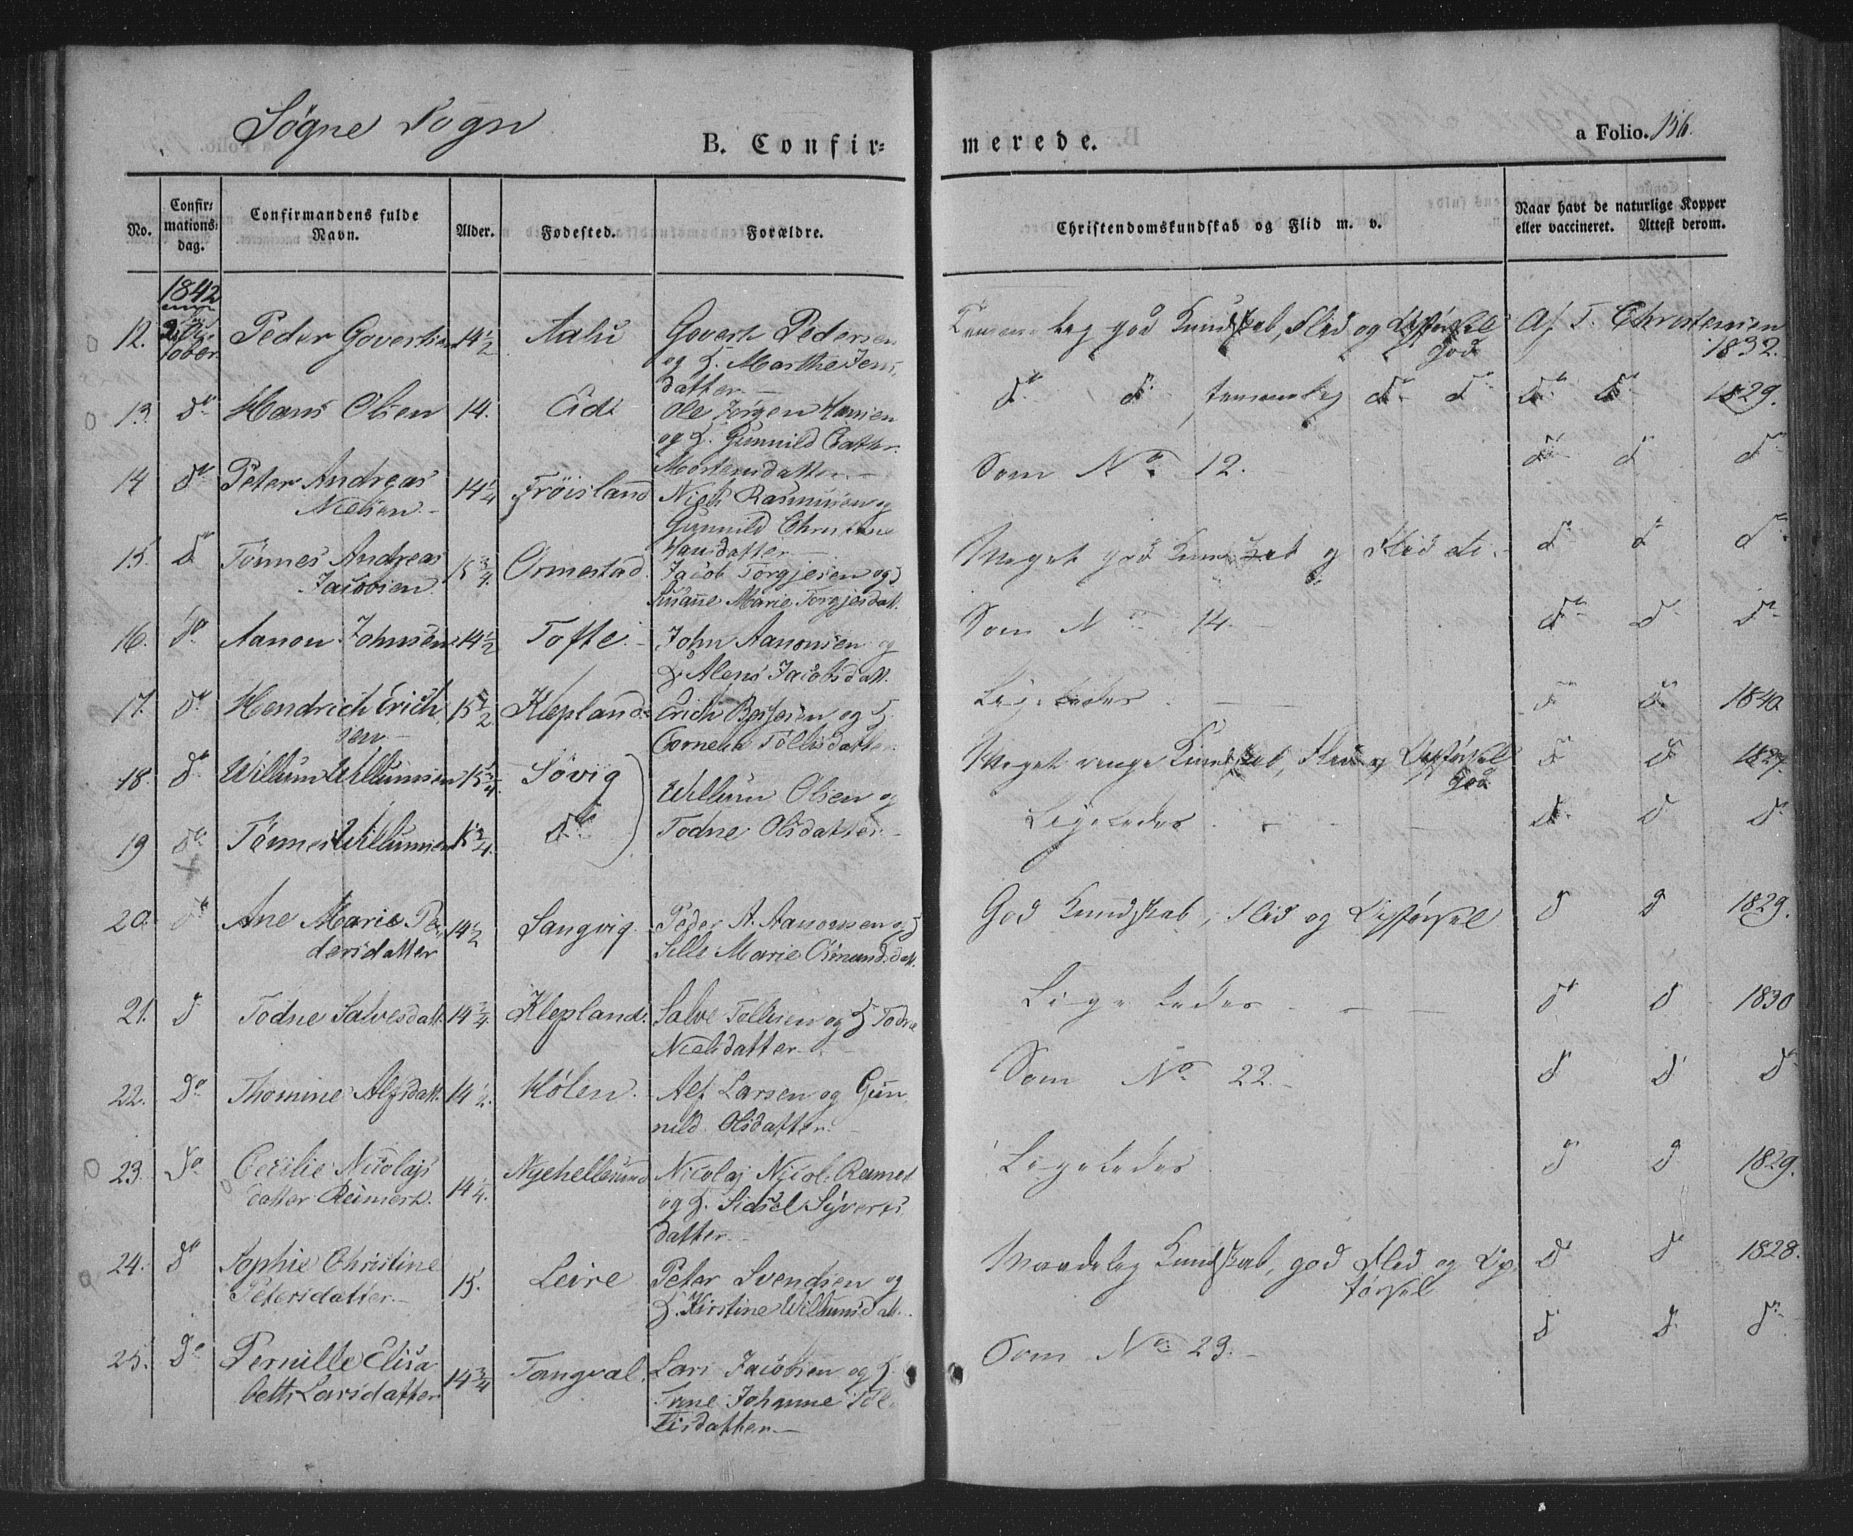 Søgne Sogn
B. Confirmerede.
a Folio. 156.
No.
Confirmationsdag.
Confirmandens fulde Navn.
Alder.
Fødested.
Forældre.
Christendomskundskab og Flid m. v.
Naar havt de naturlige Kopper eller vaccineret. Attest derom.
1842
12. Peder Govertsen 14 1/2 Aalu Govert Pedersen
og H. Marthe Jens
datter
god Kundskab, Flid og Opførsel god Af T. Christensen 1832.
13. do Hans Olsen 14. Eide Ole Jørgen Hansen
og H. Gunnild Cath.
Mortensdatter
do do temmelig do do do do 1829.
14 do Peter Andreas
Nielsen 14 1/4 Frøisland Niels Rasmussen og
Gunnild Christine
Hansdatter
Som No 12. do d do
15. do Tønnes Andreas
Jacobsen 15 3/4 Ormestad. Jacob Torgjesen og H
Susanne Marie Torgjesdatt.
Meget god Kundskab og Flid do d do
16. do Aanon Johnsen 14 1/2 Tofte John Aanonsen og
H. Alene Jacobsdatt.
Som No 14. do d do
17. do Hendrich Erich
sen 15 1/2 Klepland Erich Berjesen og H.
Cornelia Tollisdatter
Ligeledes do do 1840.
18. do Willum Willumsen 15 3/4 Søvig
Willum Olsen og
Todne Olsdatter
Meget ringe Kundskab, Flid og Opførsel god do do 1827.
19 do Tønnes Willumsen 15 3/4 do
Ligeledes do d do
20. do Ane Marie Pe
dersdatter 14 1/2 Langvig Peder A. Aanonsen og H
Sille Marie Omundsdatt.
God Kundskab, Flid og Opførsel d d 1829.
21. d Todne Salvesdatt. 14 3/4 Klepland. Salve Tollisen og H Todne
Nielsdatter
Ligeledes do d 1830
22. do Thomine Alfsdatt. 14 1/2 Hølen. Alf Larsen og Gun
nild Olsdatter
Som No 22. d d do
23. do Cecilie Nicolajs
datter Reimert. 14 1/4. Nyehellesund Nicolaj Nicol. Reimert
og H. Sidsel Syverts
datter
Ligeledes do d 1829.
24. do Sophie Christine
Petersdatter 15. Leire Peter Svendsen og
H. Kirstine Willumsdatt.
Maadelig Kundskab, god Flid og Op
førsel do d 1828.
25. do Pernille Elisa
beth Larsdatter 14 3/4 Tangval. Lars Jacobsen og H.
Anne Johanne Tol
lisdatter
Som No 23. d d do